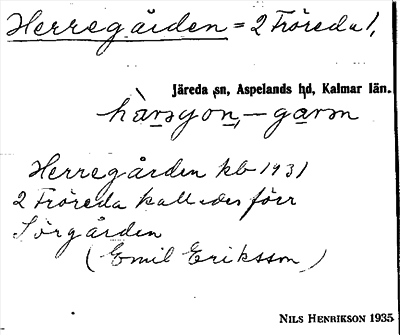 Herregården = 2 Fröreda 1,
Järeda sn, Aspelands hd, Kalmar län.
Herregården kb 1931
2 Fröreda kallades förr
Sörgården
(Emil Eriksson)
NILS HENRIKSON 1935